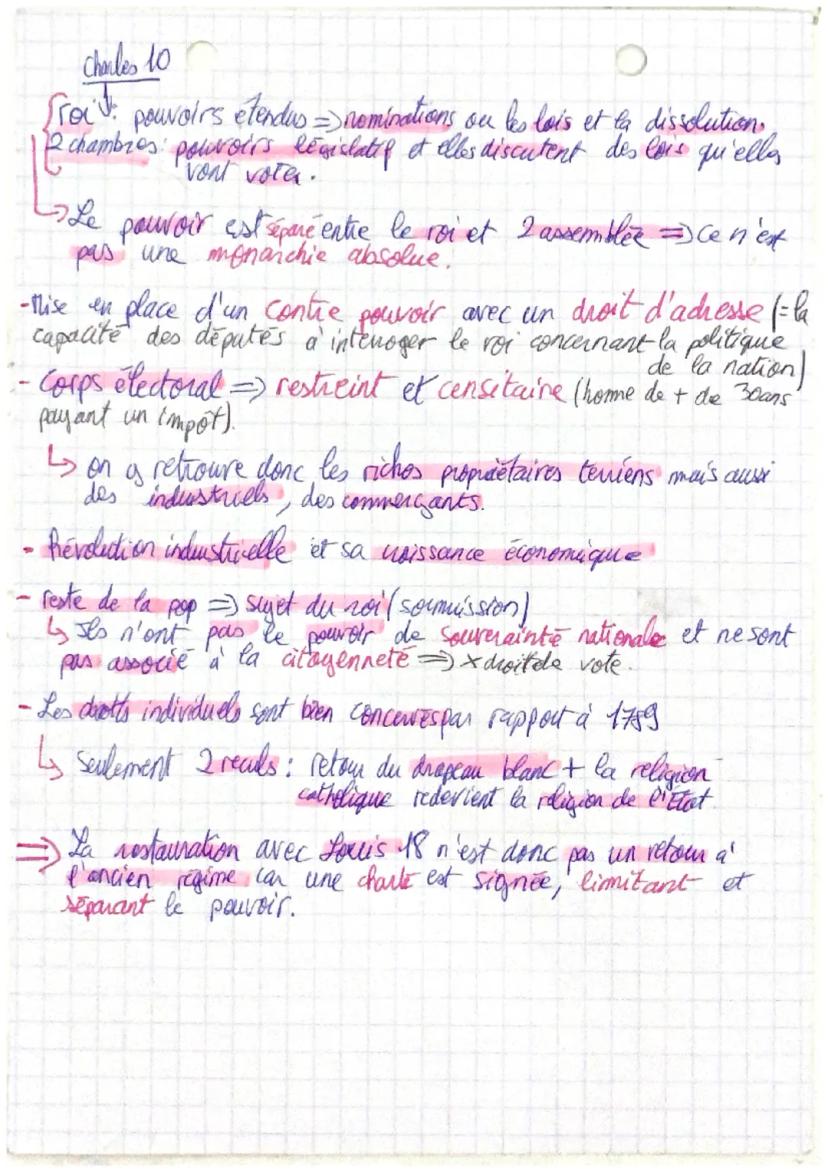 Charles 10
roi : pouvoirs étendus => nominations ou les lois et la dissolution.
2 chambres : pouvoirs législatif et elles discutent des lois qu'elles
vont voter.
↳ Le pouvoir est séparé entre le roi et 2 assemblée => ce n'est
pas une monarchie absolue.
- Mise en place d'un contre pouvoir avec un droit d'adresse (= la
capacité des députés à interroger le roi concernant la politique
de la nation)
- Corps électoral => restreint et censitaire (home de + de 30ans
payant un impôt).
↳ on y retrouve donc les riches propriétaires terriens mais aussi
des industriels, des commerçants.
- Révolution industrielle et sa croissance économique
- reste de la pop => sujet du roi (soumission)
↳ Ils n'ont pas le pouvoir de souverainté nationale et ne sont
pas associé à la citoyenneté => x droit de vote.
- Les droits individuels sont bien concerves par rapport à 1789
↳ Seulement 2 reculs : retour du drapeau blanc + la religion
catholique redevient la religion de l'État.
=> La restauration avec Louis 18 n'est donc pas un retour à
l'ancien régime car une charte est signée, limitant et
séparant le pouvoir.